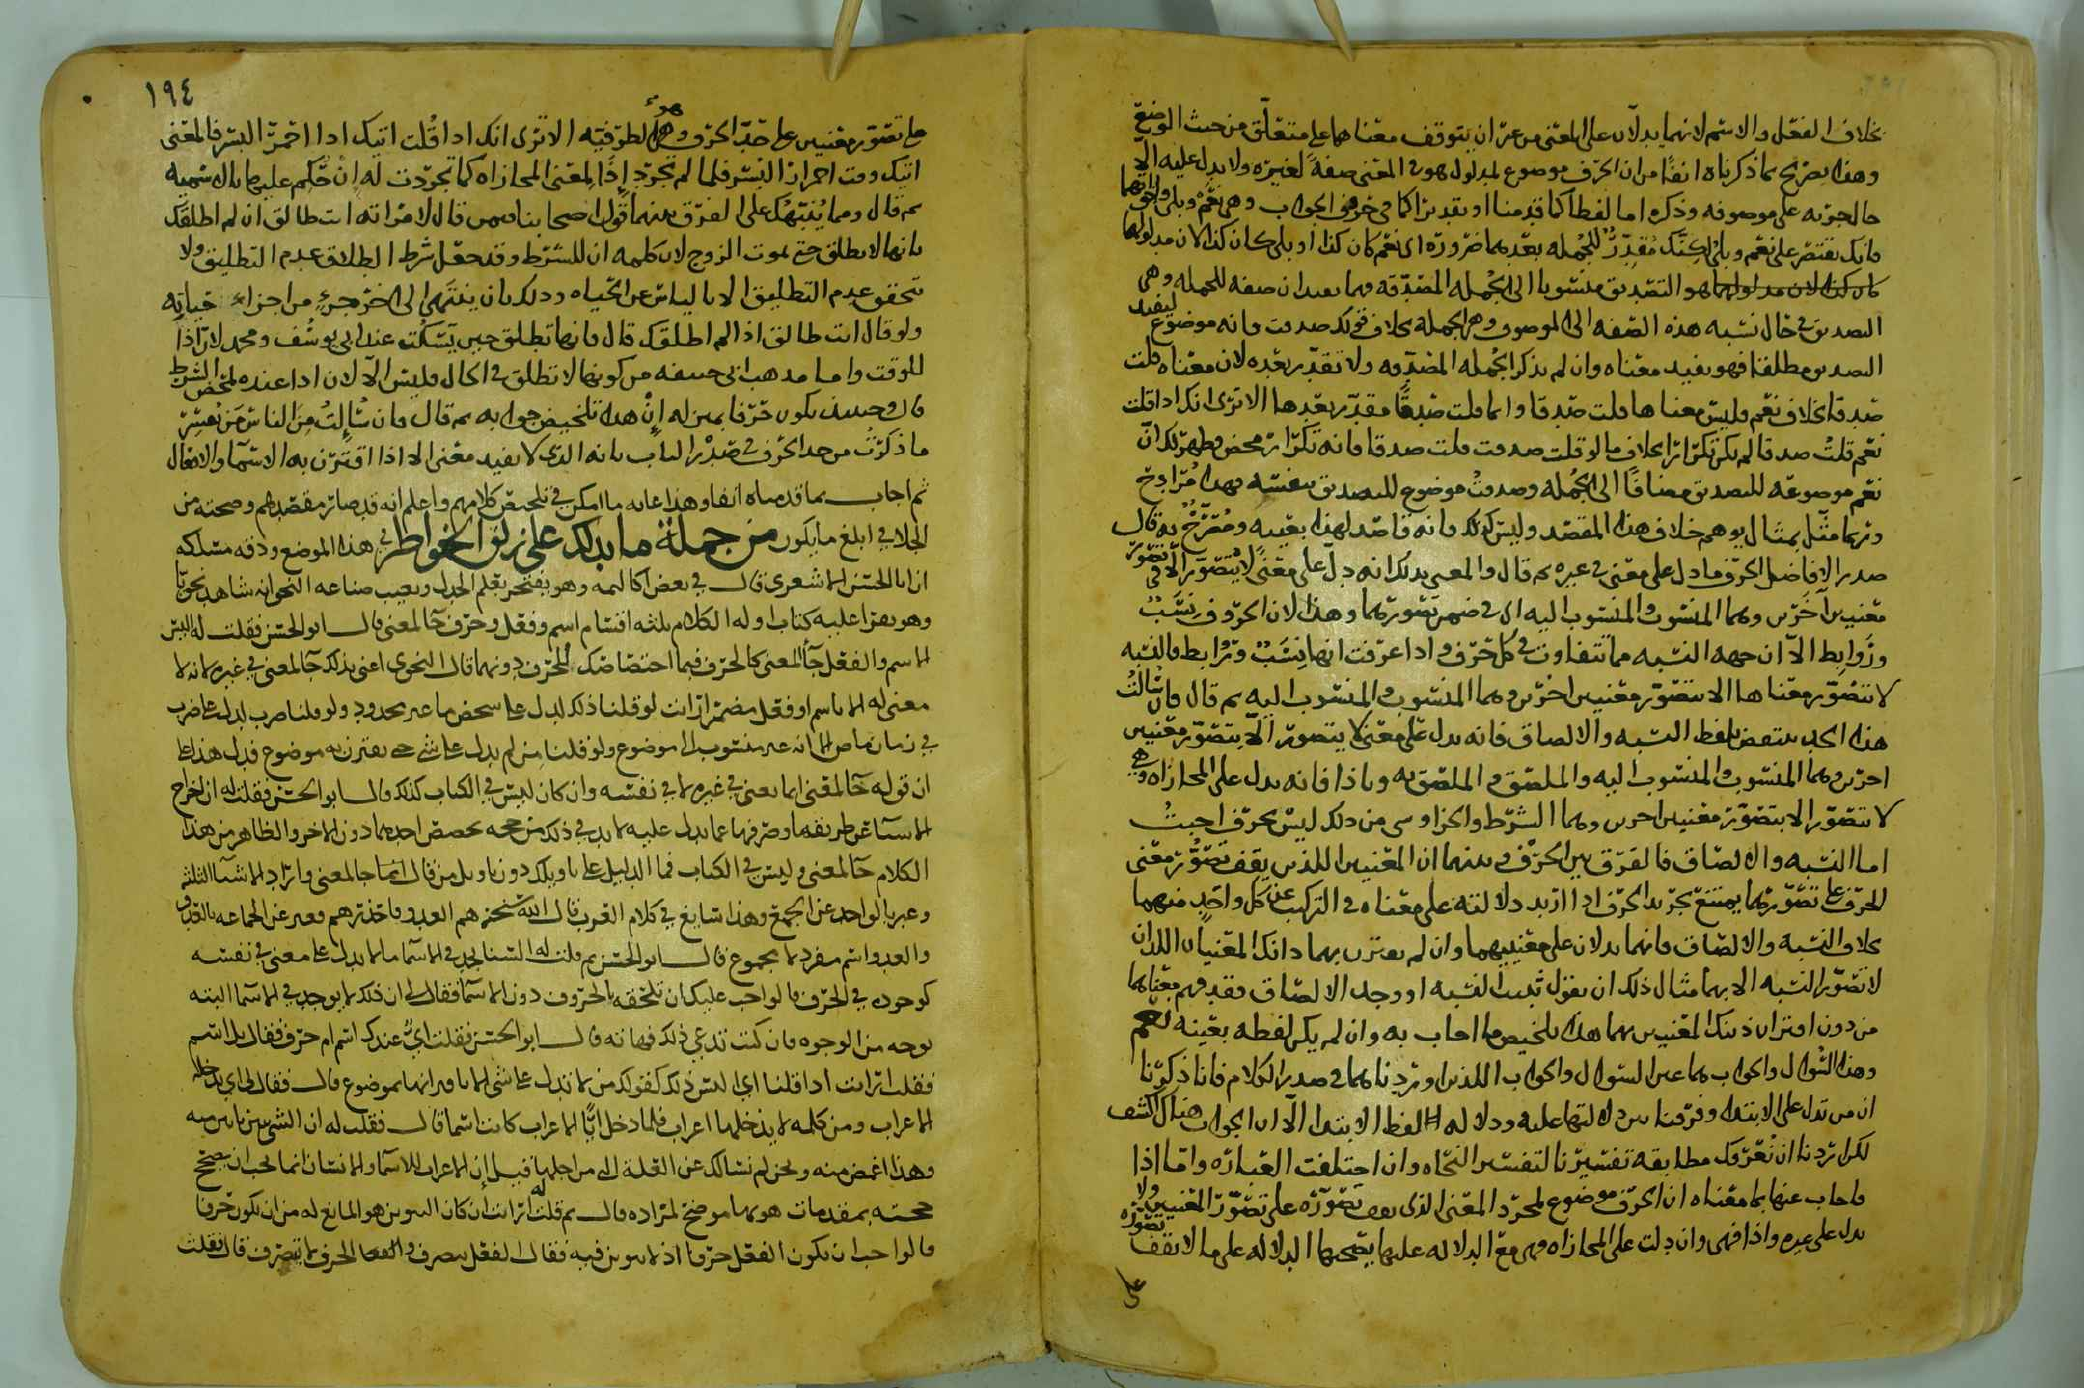 بخلاف الفعل والاسم لانهما يدلان على المعنى من غير ان يتوقف معناهما على متعلق من حيث الوضع
وهذا تصريح بما ذكرناه انفا من ان الحرف موضوع لمدلول هو في المعنى صفة لغيره ولا يدل عليه الا
حال جريه على موصوفه وذكره اما لفظا كما قدمنا او تقديرا كما في حروف الجواب وهي نعم وبلى واخواتهما
فانك تقتصر على نعم وبلى لكنك مقدر للجمله بعدهما ضرورة اي نعم كان كذا او بلى كان كذا لان مدلولها
هو التصديق منسوبا الى الجمله المصدقه فهما يفيدان صفه للجمله وهي
التصديق في حال نسبه هذه الصفه الى الموصوف وهو الجملة بخلاف قولك صدقت فانه موضوع ليفيد
التصديق مطلقا فهو يفيد معناه وان لم يذكر الجمله المصدقه ولا تقدر بعده لان معناه قلت
صدقا بخلاف نعم فليس معناها قلت صدقا وانما قلت صدقا مقدر بعدها الا ترى انك اذا قلت
نعم قلت صدقا لم يكن تكرارا بخلاف ما لو قلت صدقت قلت صدقا فانه تكرار محض فظهر لك ان
نعم موضوعه للتصديق مضافا الى الجمله وصدقت موضوع للتصديق بنفسه فهذا مراد ح
وربما مثل بمثال يوهم خلاف هذا المقصد وليس كذلك فانه قاصد لهذا بعينه ومصرح به قال
صدر الافاضل الحرف ما دل على معنى في غيره ثم قال والمعنى بذلك انه دل على معنى لا يتصور الا في تصور
معنيين آخرين وهما المنسوب والمنسوب اليه اي في ضمن تصورهما وهذا لان الحروف نسب
وروابط الا ان جهه النسبه مما تتفاوت في كل حرف واذا عرفت انها نسب وروابط فالنسبه
لا تتصور معناها الا بتصور معنيين اخرين وهما المنسوب والمنسوب اليه ثم قال فان سالت
هذا الحد ينتقض بلفظ النسبه والالصاق فانه يدل على معنى لا يتصور الا بتصور معنيين
اخرين وهما المنسوب والمنسوب اليه والملصق والملصق به وباذا فانه يدل على المجازاه وهي
لا تتصور الا بتصور معنيين اخرين وهما الشرط والجزا وشي من ذلك ليس بحرف اجبت
اما النسبه والالصاق فالفرق بين الحرف وبينهما ان المعنيين اللذين يقف تصور معنى
الحرف على تصورهما يمتنع تجريد الحرف اذا اريد دلالته على معناه في التركيب عن كل واحد منهما
بخلاف النسبه والالصاق فانهما يدلان على معنييهما وان لم يقترن بهما ذانك المعنيان اللذان
لا تصور النسبه الا بهما مثال ذلك ان تقول ثبتت النسبه او وجد الالصاق فقد فهم معناهما
من دون اقتران ذينك المعنيين بهما هذا تلخيص ما اجاب به وان لم يكن لفظه بعينه نعم
وهذا السوال والجواب هما عين السوال والجواب اللذين اوردناهما في صدر الكلام فانا ذكرنا
ان من تدل على الابتدا وفرقنا بين دلالتها عليه ودلاله لفظ الابتدا الا ان الجواب هناك اكشف
لكن اردنا ان نعرفك مطابقه تفسيرنا لتفسير النحاه وان اختلفت العباره واما اذا
فاجاب عنها بما معناه ان الحرف موضوع لمجرد المعنى الذي يقف تصوره على تصور المعنيين ولا
يدل على غيره واذا فهي وان دلت على المجازاه فهي مع الدلاله عليها يصحبها الدلاله على ما لا يقف تصوره
على
١٩٤
ما تصور معنيين على حد الحرف وهو الظرفيه الا ترى انك اذا قلت اتيك اذا احمر البسر فالمعنى
اتيك وقت احمرار البسر فلما لم تجرد إذا لمعنى المجازاه كما تجردت له إن حكم عليها بالاسميه
ثم قال ومما ينبهك على الفرق بينهما قول اصحابنا فيمن قال لامراته انت طالق ان لم اطلقك
بانها لا تطلق حتى يموت الزوج لان كلمه ان للشرط وقد جعل شرط الطلاق عدم التطليق ولا
يتحقق عدم التطليق الا بالياس عن الحياه وذلك بان ينتهى الى اخر جزء من اجزاء حياته
ولو قال انت طالق اذا لم اطلقك قال فانها تطلق حين يسكت عند ابي يوسف ومحمد لان اذا
للوقت واما مذهب ابي حنيفه من كونها لا تطلق في الحال فليس الا لان اذا عنده لمحض الشرط
قال وحينئذ يكون حرفا بمنزله إن هذا تلخيص جوابه ثم قال فان سالت من الناس من يفسر
ما ذكرت من حد الحرف في صدر الباب بانه الذي لا يفيد معنى الا اذا اقترن به الاسما والافعال
ثم اجاب بما قدمناه انفا وهذا غايه ما امكن في تلخيص كلامهم واعلم انه قد صار مقصدهم وصحته من
الجلا في ابلغ ما يكون من جملة ما يدلك على زلق الخواطر في هذا الموضع ودقه مسلكه
ان ابا الحسن الاشعري قال في بعض اماليه وهو يفتخر بعلم الجدل ويعيب صناعه النحو انه شاهد نحويا
وهو يقرا عليه كتاب اوله الكلام ثلثه اقسام اسم وفعل وحرف جا لمعنى قال ابو الحسن فقلت له اليس
الاسم والفعل جا لمعنى كالحرف فما اختصاصك الحرف دونهما قال النحوي اعني بذلك جا لمعنى في غيره لانه لا
معنى له الا باسم او فعل مضمر ان انت لو قلنا ذلك لدل على شخص ما غير محدود ولو قلنا ضرب لدل على ضرب
في زمان ماض الا انه غير منسوب الى موضوع ولو قلنا من لم يدل على شي حتى يقترن به موضوع فدل هذا على
ان قوله جا لمعنى انما يعنى في غيره لا في نفسه وان كان ليس في الكتاب كذلك قال ابو الحسن فقلت له ان اخراج
الاسما عن طريقها وصرفها عما يدل عليه لا بد في ذلك من حجه تخصص احدهما دون الاخر والظاهر من هذا
الكلام جا لمعنى وليس في الكتاب فما الدليل على تاويلك دون تاويل من قال انما جا لمعنى واراد الاشيا الثلثه
وعبر بالواحد عن الجمع وهذا شايع في كلام العرب قال الله هم العدو فاحذرهم فعبر عن الجماعه بالعدو
والعدو اسم مفرد لا مجموع قال ابو الحسن ثم قلت له السنا نجد في الاسما ما لا يدل على معنى في نفسه
كوجوده في الحرف فالواجب عليك ان تلحقه بالحروف دون الاسما فقال لي ان ذلك لا يوجد في الاسما البته
بوجه من الوجوه فان كنت تدعي ذلك فهاته قال ابو الحسن فقلت اي عندك اسم ام حرف فقال بل اسم
فقلت ارايت اذا قلنا اي اليس ذلك كقولك من لا تدل على شي الا باقترانها بموضوع قال فقال لي اي يدخله
الاعراب ومن كلمه لا يدخلها اعراب فلما دخل ايا الاعراب كانت اسما قال فقلت له ان الشي يبين بابين منه
وهذا اغمض منه ونحن لم نسالك عن العلة التي من اجلها قيل إن الاعراب للاسما والانسان انما يجب ان يصحح
حجته بمقدمات هو بها موضح لمراده قال ثم قلت له ارايت ان كان التنوين هو المانع له من ان يكون حرفا
فالواجب ان يكون الفعل حرفا اذ لا تنوين فيه فقال الفعل يتصرف والحرف لا يتصرف قال فقلت